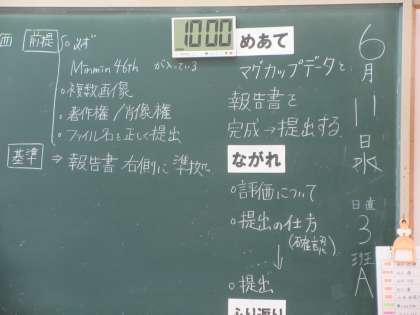 6月11日水
日直
3班A
めあて
マグカップデータと
報告書を
完成→提出する
ながれ
○評価について
○提出の仕方
(確認)
○提出
ふり返り
10:00
価 前提
○必ず
Minmin 46th が入っている
○複数画像
○著作権/肖像権
○ファイル名を正しく提出
基準 ⇒ 報告書 右側に準拠